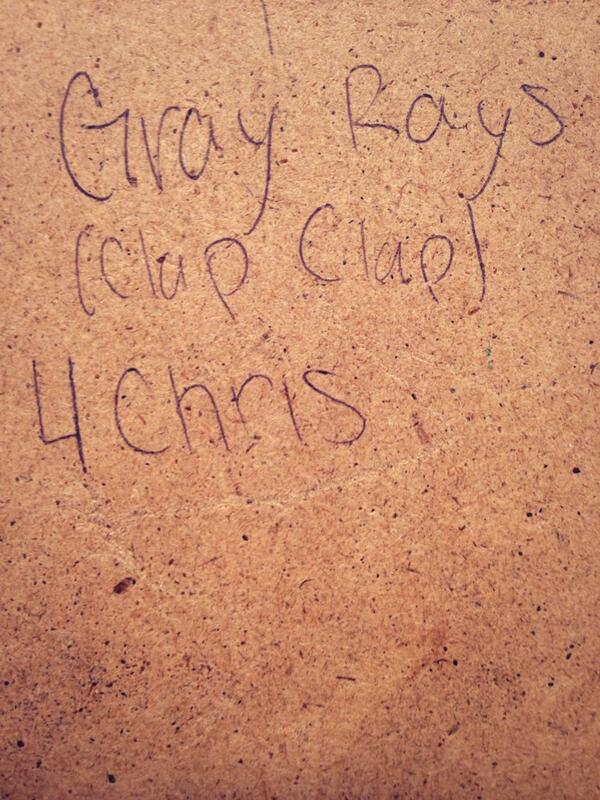 Gray Rays
(Clap Clap)
4 Chris